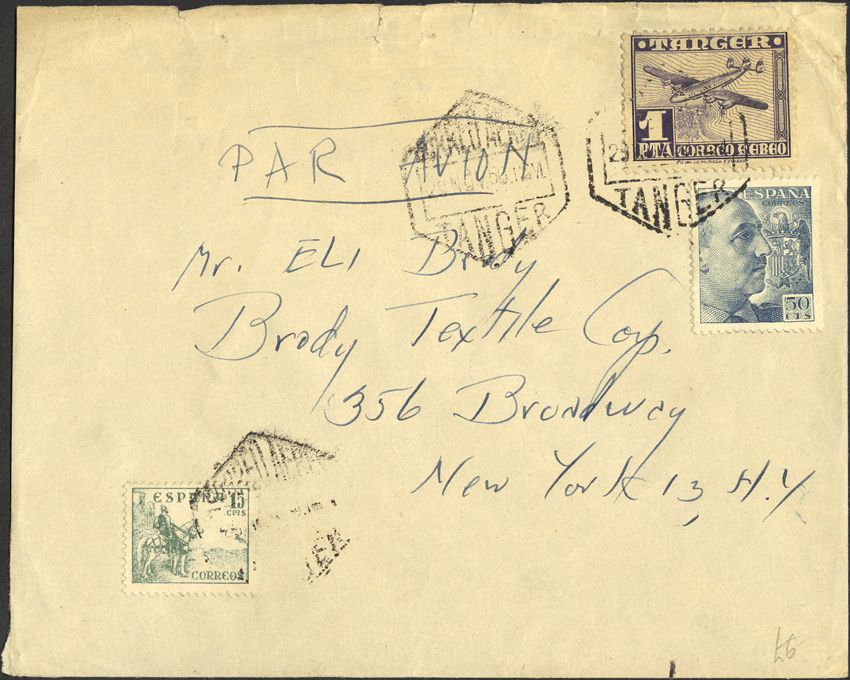 TANGER
1
PTA CORREO AEREO
CORREO AEREO
TANGER
29
TANGER
PAR AVION
ESPAÑA
CORREOS
50
CTS
Mr. ELI Brody
Brody Textile Corp.
356 Broadway
New York 13, N.Y.
ESPAÑA 15
CTS
CORREOS
CORREO AEREO